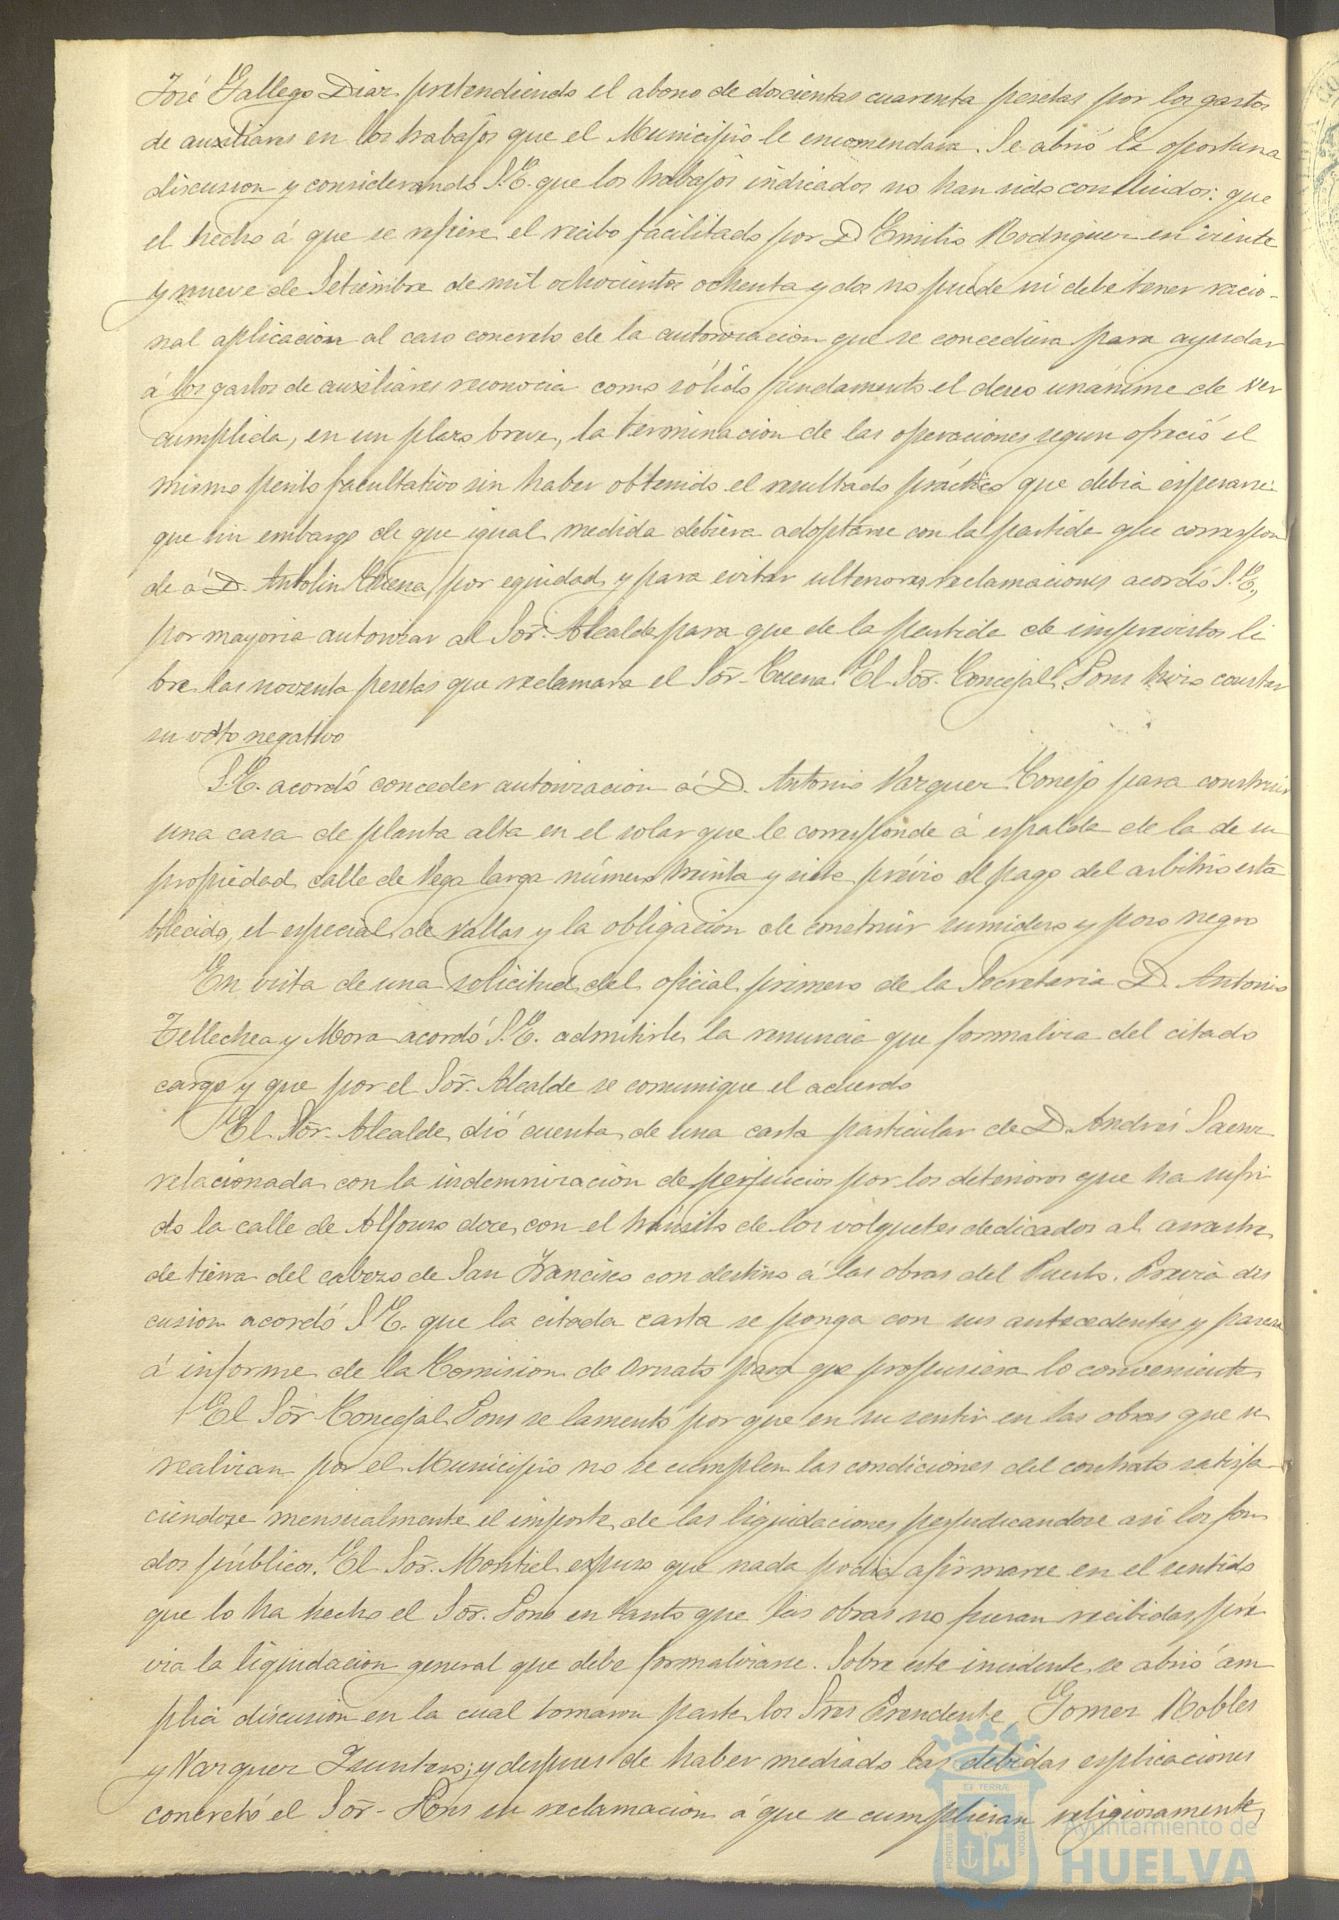 José Gallego Diaz pretendiendo el abono de doscientas cuarenta pesetas por los gastos
de auxiliares en los trabajos que el Municipio le encomendara. Se abrió la oportuna
discusion y considerando S.E. que los trabajos indicados no han sido concluidos: que
el hecho á que se refiere el recibo facilitado por D Emilio Rodriguez en veinte
y nueve de Setiembre de mil ochocientos ochenta y dos no puede ni debe tener racio-
nal aplicacion al caso concreto de la autorizacion que se concediera para ayudar
á los gastos de auxiliares reconocia como sólido fundamento el deseo unánime de ver
cumplida, en un plazo breve, la terminacion de las operaciones segun ofreció el
mismo perito facultativo sin haber obtenido el resultado práctico que debia esperarse:
que sin embargo de que igual medida debiera adoptarse con la partida que correspon
de á D. Antolin Cuena, por equidad y para evitar ulteriores reclamaciones acordó S.E.,
por mayoria autorizar al Sor. Alcalde para que de la partida de imprevistos li
bre las noventa pesetas que reclamara el Sor. Cuena. El Sor. Concejal Pons hizo constar
su voto negativo
S.E. acordó conceder autorizacion á D. Antonio Vazquez Conejo para construir
una casa de planta alta en el solar que le corresponde á espalda de la de su
propiedad calle de Vega larga número treinta y siete prévio el pago del arbitrio esta
blecido, el especial de vallas y la obligacion de construir sumidero y pozo negro
En vista de una solicitud del oficial primero de la Secretaria D. Antonio
Tellechea y Mora acordó S.E. admitirle la renuncia que formaliza del citado
cargo y que por el Sor. Alcalde se comunique el acuerdo
El Sor. Alcalde dió cuenta de una carta particular de D. Andrés Saenz
relacionada con la indemnizacion de perjuicios por los deterioros que ha sufri
do la calle de Alfonso doce con el tránsito de los volquetes dedicados al arrastre
de tierra del cabezo de San Francisco con destino á las obras del Puerto. Prévia dis
cusion acordó S.E. que la citada carta se ponga con sus antecedentes y pasara
á informe de la Comision de Ornato para que propusiera lo conveniente
El Sor. Concejal Pons se lamentó por que en su sentir en las obras que se
realizan por el Municipio no se cumplen las condiciones del contrato satisfa-
ciendose mensualmente el importe de las liquidaciones perjudicandose asi los fon
dos públicos. El Sor. Montiel expuso que nada podia afirmarse en el sentido
que lo ha hecho el Sor. Pons en tanto que las obras no fueran recibidas, pré
via la liquidacion general que debe formalizarse. Sobre este incidente se abrió am
plia discusion en la cual tomaron parte los Sres Presidente, Gomez Robles
y Vazquez Zunters; y despues de haber mediado las debidas esplicaciones
concretó el Sor. Pons su reclamacion á que se cumplieran religiosamente
Ayuntamiento de
HUELVA